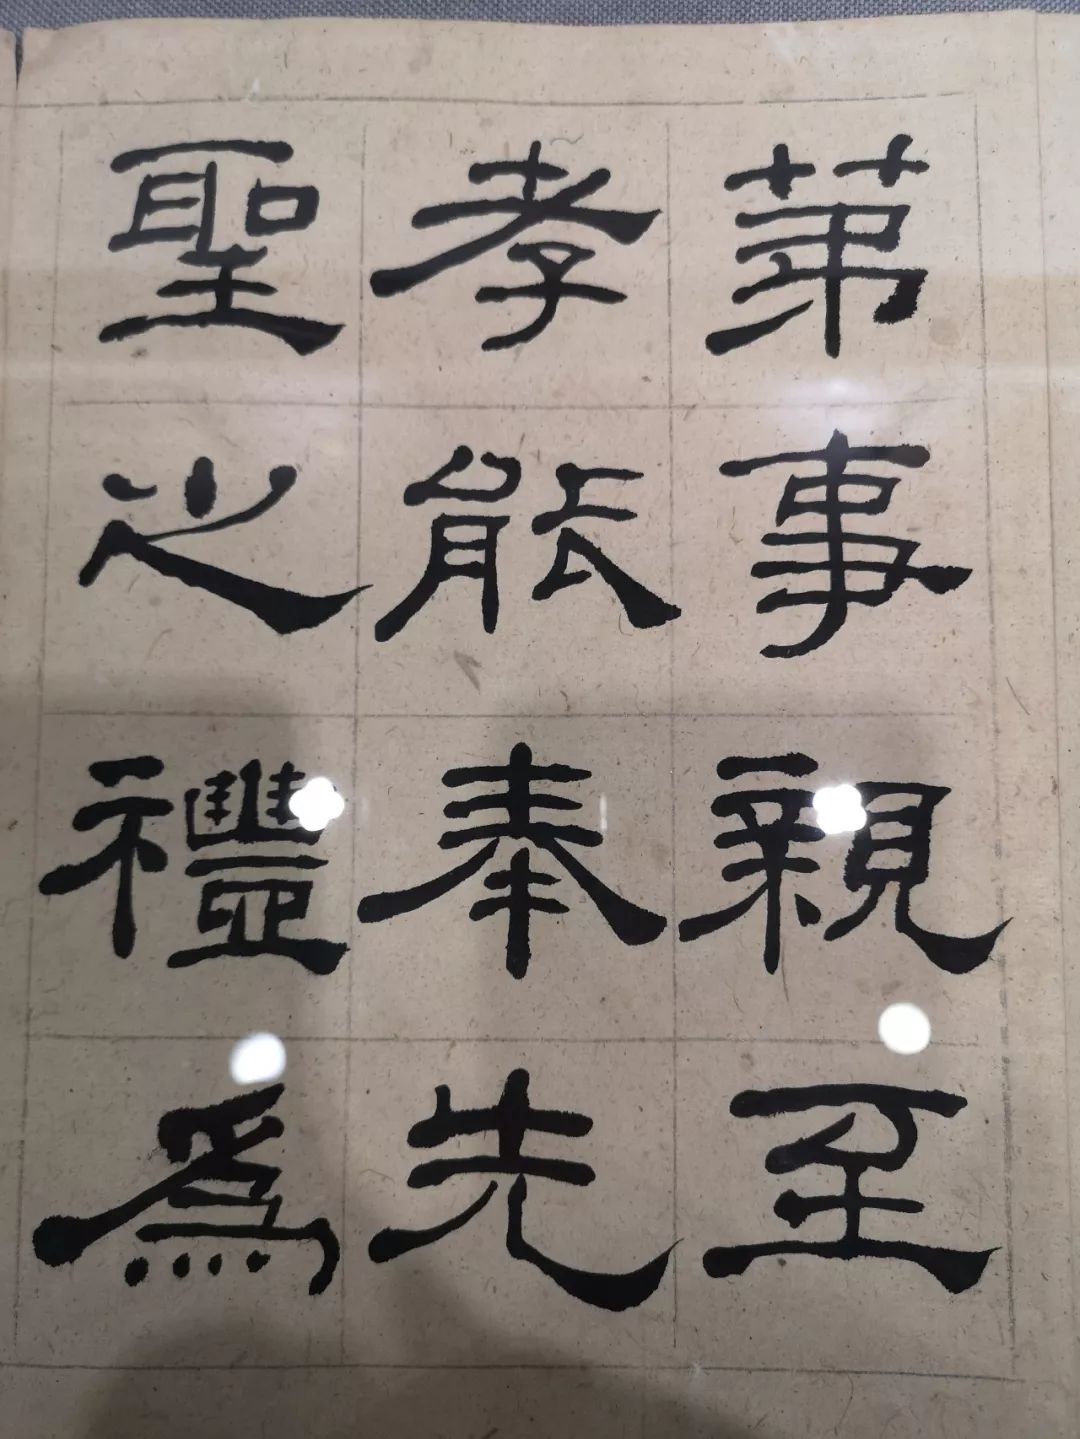 苐事親至
孝能奉先
聖之禮為